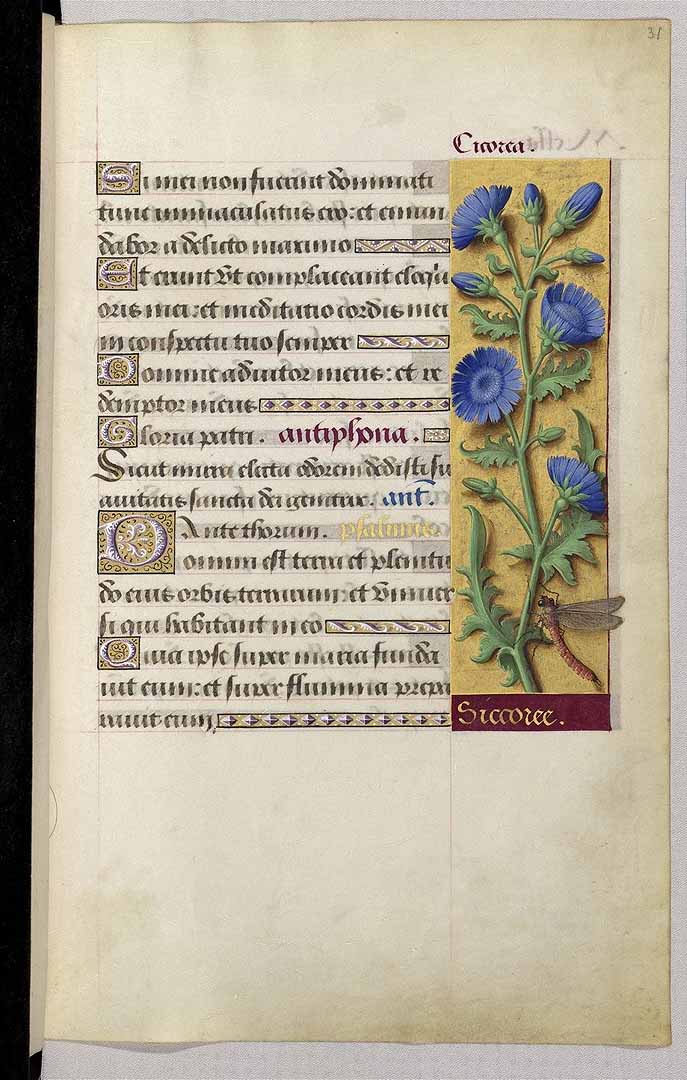 31
Cicorea.
Si mei non fuerint dominati
tunc immaculatus ero: et emun
dabor a delicto maximo
Et erunt Vt complaceant eloqui
oris mei: et meditatio cordis mei
in conspectu tuo semper
Domine adiutor meus: et re
demptor meus
Gloria patri. antiphona.
Sicut mirra electa odorem dedisti su
auitatis sancta dei genitrix. ant.
Ante thorum. psalmus
Domini est terra et plenitu
do eius orbis terrarum: et Vniuer
si qui habitant in eo
Quia ipse super maria funda
uit eum: et super flumina prepa
rauit eum
Siccoree.